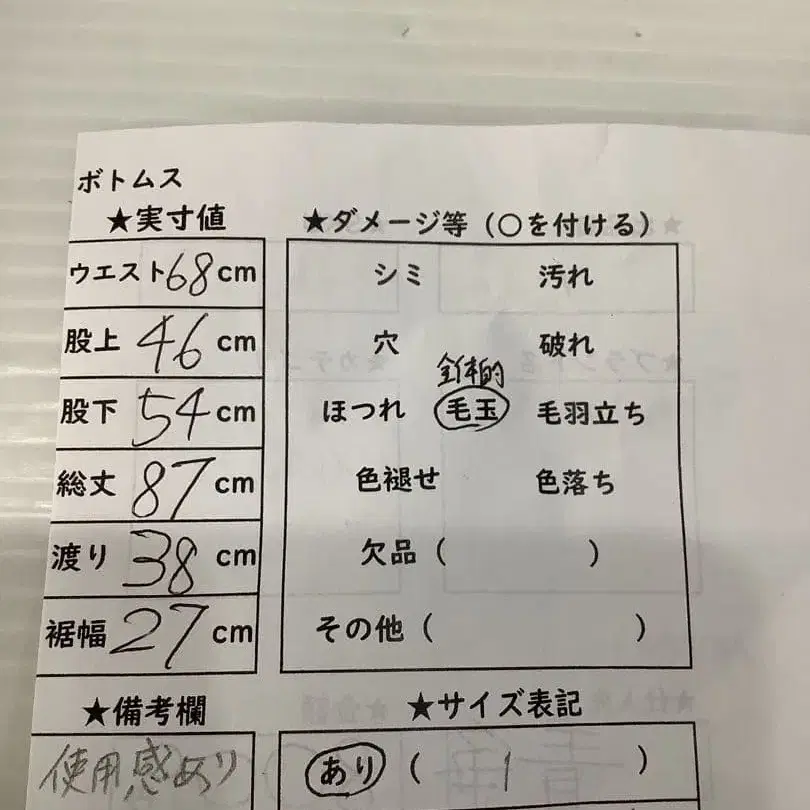 ボトムス
★実寸値
ウエスト68cm
股上 46 cm
股下 54 cm
総丈 87 cm
渡り 38 cm
裾幅 27 cm
★備考欄
使用感あり
★ダメージ等（○を付ける）
シミ 汚れ
穴 破れ
全体的
ほつれ 毛玉 毛羽立ち
色褪せ 色落ち
欠品（ ）
その他（ ）
★サイズ表記
あり （ 1 ）